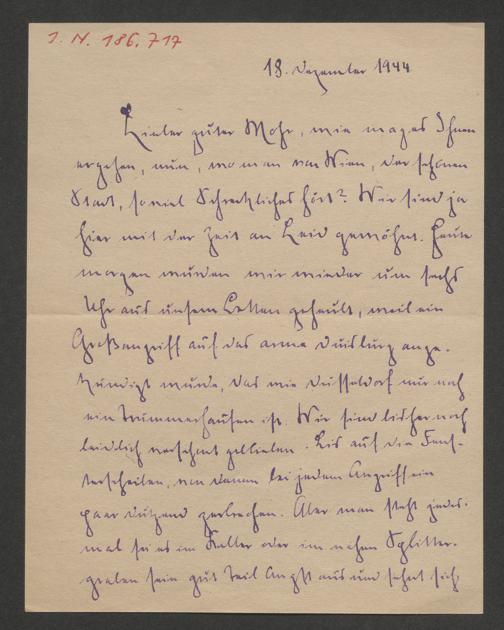 I. N. 186.717
18. Dezember 1944
Lieber guter Mohr, wie mag es Ihnen
ergehen, nun, wo man von Wien, der schönen
Stadt, so viel Schreckliches hört? Wir sind ja
hier mit der Zeit an Leid gewöhnt. Heute
morgen wurden wir wieder um sechs
Uhr aus unsern Betten geheult, weil ein
Großangriff auf das arme Duisburg ange-
kündigt wurde, das wie Düsseldorf nur noch
ein Trümmerhaufen ist. Wir sind bisher noch
leidlich verschont geblieben. Bis auf die Fens-
terscheiben, von denen bei jedem Angriff ein
paar Dutzend zerbrechen. Aber man steht jedes-
mal sei es im Keller oder im nahen Splitter-
graben sein gut Teil Angst aus und sehnt sich